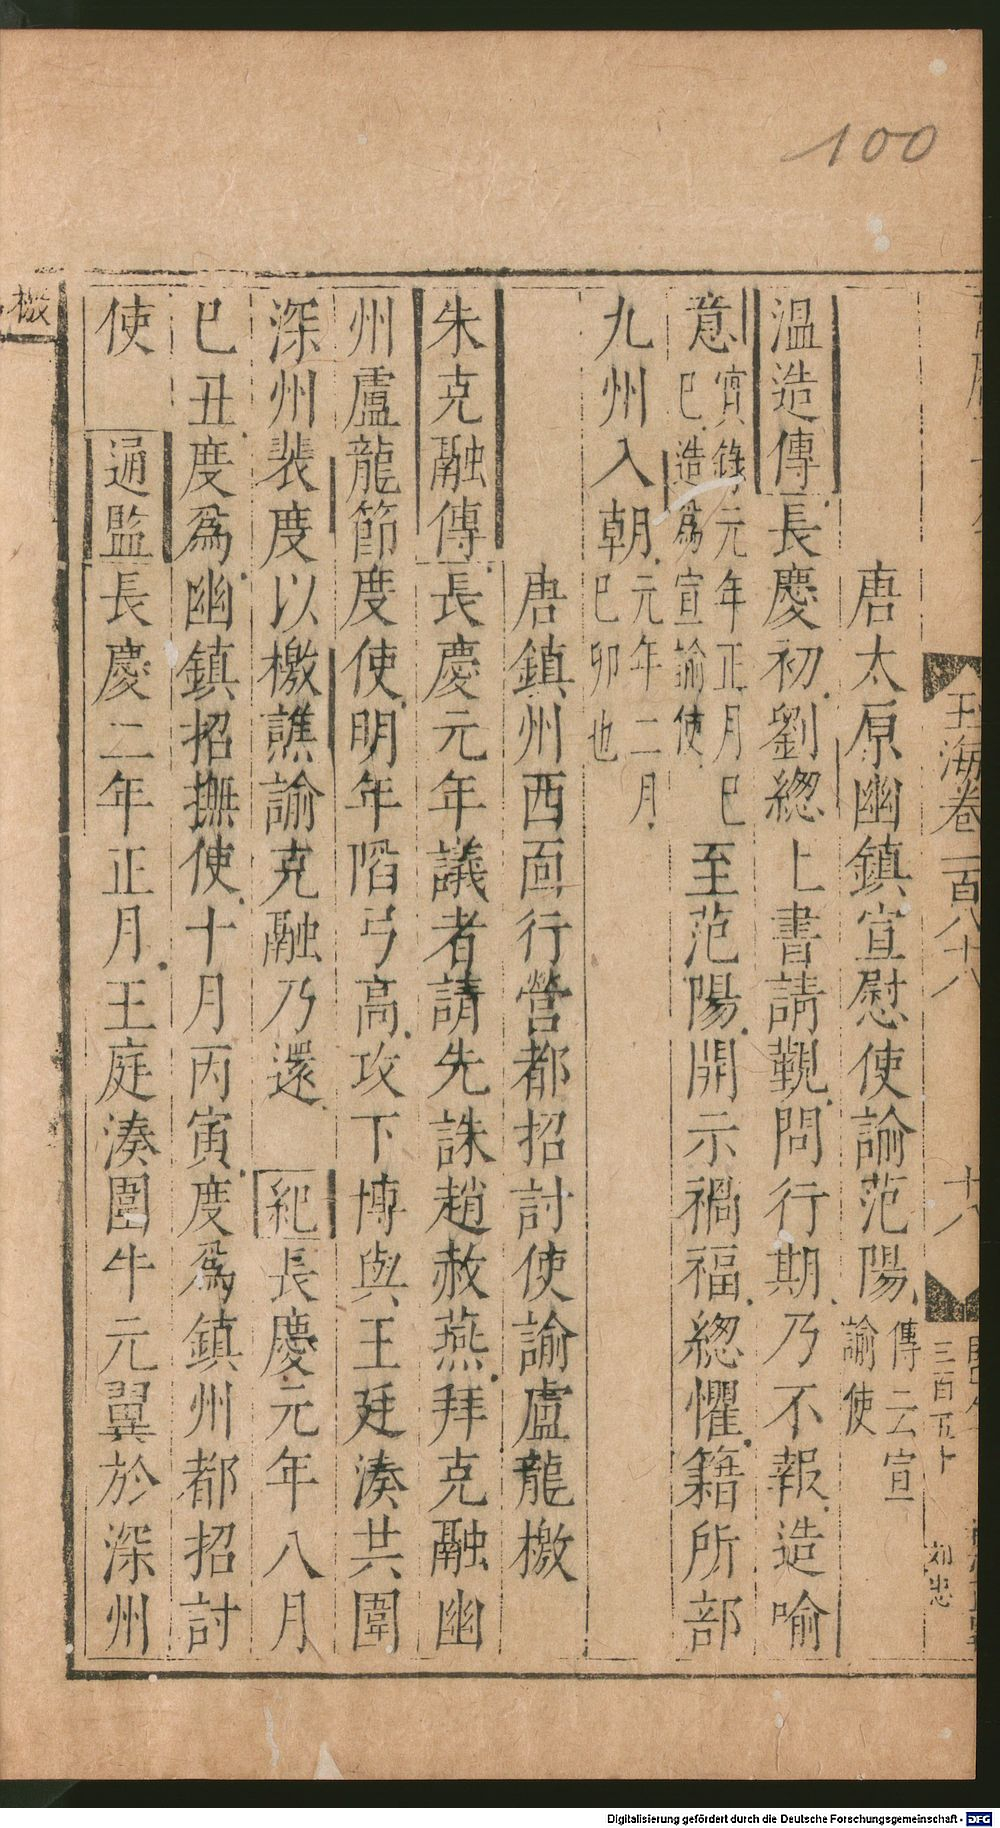 100
玉海卷一百八十八
十八
三百五十
刘忠
唐太原幽鎮宣慰使諭范陽傳云宣諭使
溫造傳長慶初劉緫上書請覲問行期乃不報造喻
意實錄元年正月己巳造爲宣諭使至范陽開示禍福緫懼籍所部
九州入朝元年二月己卯也
唐鎮州西面行營都招討使諭盧龍檄
朱克融傳長慶元年議者請先誅趙赦燕拜克融幽
州盧龍節度使明年陷弓高攻下博與王廷湊共圍
深州裴度以檄譙諭克融乃還紀長慶元年八月
巳丑度爲幽鎮招撫使十月丙寅度爲鎮州都招討
使通監長慶二年正月王庭湊圍牛元翼於深州
檄
Digitalisierung gefördert durch die Deutsche Forschungsgemeinschaft - DFG